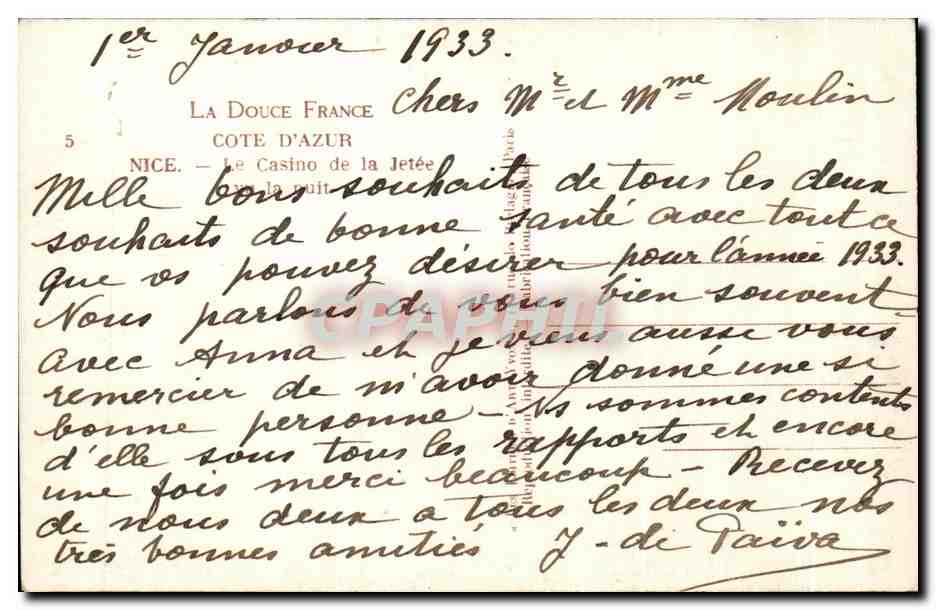 1er Janvier 1933.
Chers Mr et Mme Moulin
LA DOUCE FRANCE
5 COTE D'AZUR
NICE. — Le Casino de la Jetée
vu la nuit
Mille bons souhaits de tous les deux
souhaits de bonne santé avec tout ce
que vs pouvez désirer pour l'année 1933.
Nous parlons de vous bien souvent
avec Anna et je viens aussi vous
remercier de m'avoir donné une si
bonne personne — Ns sommes contents
d'elle sous tous les rapports et encore
une fois merci beaucoup — Recevez
de nous deux a tous les deux nos
très bonnes amitiés J - de Païva
CPAPHIL
Yvon
Paris
Reproduction interdite
Fabrication Française